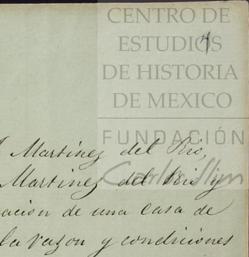 CENTRO DE
ESTUDIOS
DE HISTORIA
DE MEXICO
4
FUNDACIÓN
Martinez del Rio,
Carlos Slim
Martinez del Rio y
acion de una casa de
la razon y condiciones